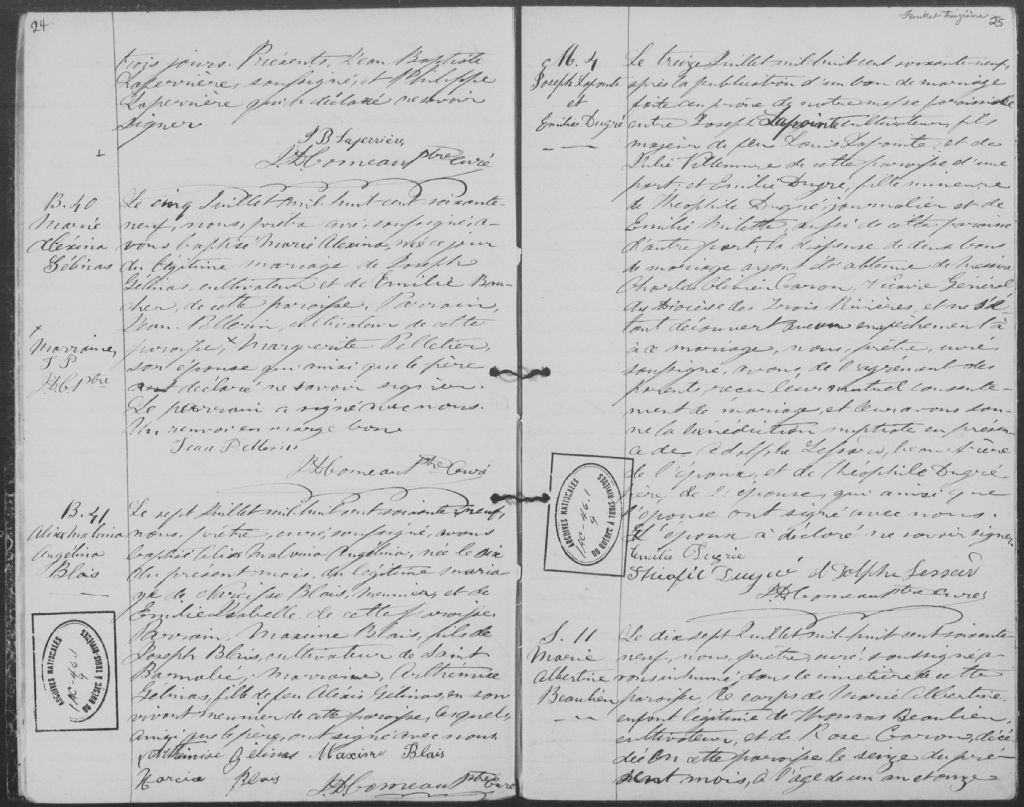 24
trois jours. Présents, Jean-Baptiste
Laperrière, soussigné, et Philippe
Laperrière qui a déclaré ne savoir
signer
J B Laperrière
Ptre Curé
B. 40
Marie
Aléxina
Gélinas
Le cinq Juillet mil huit cent soixante-
neuf, nous, prêtre curé, soussigné, a-
vons baptisé Marie Aléxina, née ce jour
du légitime mariage de Joseph
Gélinas, cultivateur et de Emilie Bou-
cher, de cette paroisse, Parrain,
Jean Pellerin, cultivateur de cette
paroisse, + Marguerite Pelletier,
son épouse qui ainsi que le père
ont déclaré ne savoir signer.
Le parrain a signé avec nous.
Un renvoi en marge bon
+
Marraine,
J P
Ptre
Jean Pellerin
Comeau Ptre Curé
B. 41
Alixe Malvina
Angelina
Blais
Le sept Juillet mil huit cent soixante neuf,
nous, prêtre, curé, soussigné, avons
baptisé Alixe Malvina Angelina, née le six
du présent mois, du légitime maria-
ge de Narcisse Blais, meunier, et de
Emilie Isabelle de cette paroisse
Parrain, Maxime Blais, fils de
Joseph Blais, cultivateur de Saint
Barnabé, Marraine, Arthémise
Gélinas, fille de feu Alexis Gélinas, en son
vivant meunier de cette paroisse, lesquels,
ainsi que le père, ont signé avec nous
Arthémise Gélinas Maxime Blais
Narcis Blais
Comeau Ptre Curé
ARCHIVES NATIONALES
DU QUÉBEC À TROIS-RIVIÈRES
Feuillet treizième 25
M. 4
Joseph Lapointe
et
Emilie Dugré
Le treize Juillet mil huit cent soixante neuf,
après la publication d'un ban de mariage
faite au prône de notre messe paroissiale
entre Joseph Lapointe cultivateur, fils
majeur de feu Louis Lapointe et de
Julie Villemure de cette paroisse d'une
part; et Emilie Dugré, fille mineure
de Théophile Dugré, journalier et de
Emilie Milette, aussi de cette paroisse
d'autre part; la dispense de deux bans
de mariage ayant été obtenue de Messire
Charles Olivier Caron, Vicaire Général
du Diocèse des Trois Rivières, et ne s'é-
tant découvert aucun empêchement à
ce mariage, nous, prêtre, curé
soussigné, avons, de l'agrément des
parents, reçu leur mutuel consente-
ment de mariage, et leur avons don-
né la bénédiction nuptiale en présen-
ce de Adolphe beau-frère
de l'époux, et de Théophile Dugré
père de l'épouse, qui ainsi que
l'épouse ont signé avec nous.
L'époux a déclaré ne savoir signer
Emilie Dugrée
Comeau Ptre Curé
ARCHIVES NATIONALES
DU QUÉBEC À TROIS-RIVIÈRES
S. 11
Marie
Albertine
Beaulieu
Le dix sept Juillet mil huit cent soixante-
neuf, nous, prêtre, curé, soussigné, a-
vons inhumé, dans le cimetière de cette
paroisse, le corps de Marie Albertine
enfant légitime de Thomas Beaulieu,
cultivateur, et de Rose Caron, décé-
dée en cette paroisse le seize du pré-
sent mois, à l'âge de un an et onze